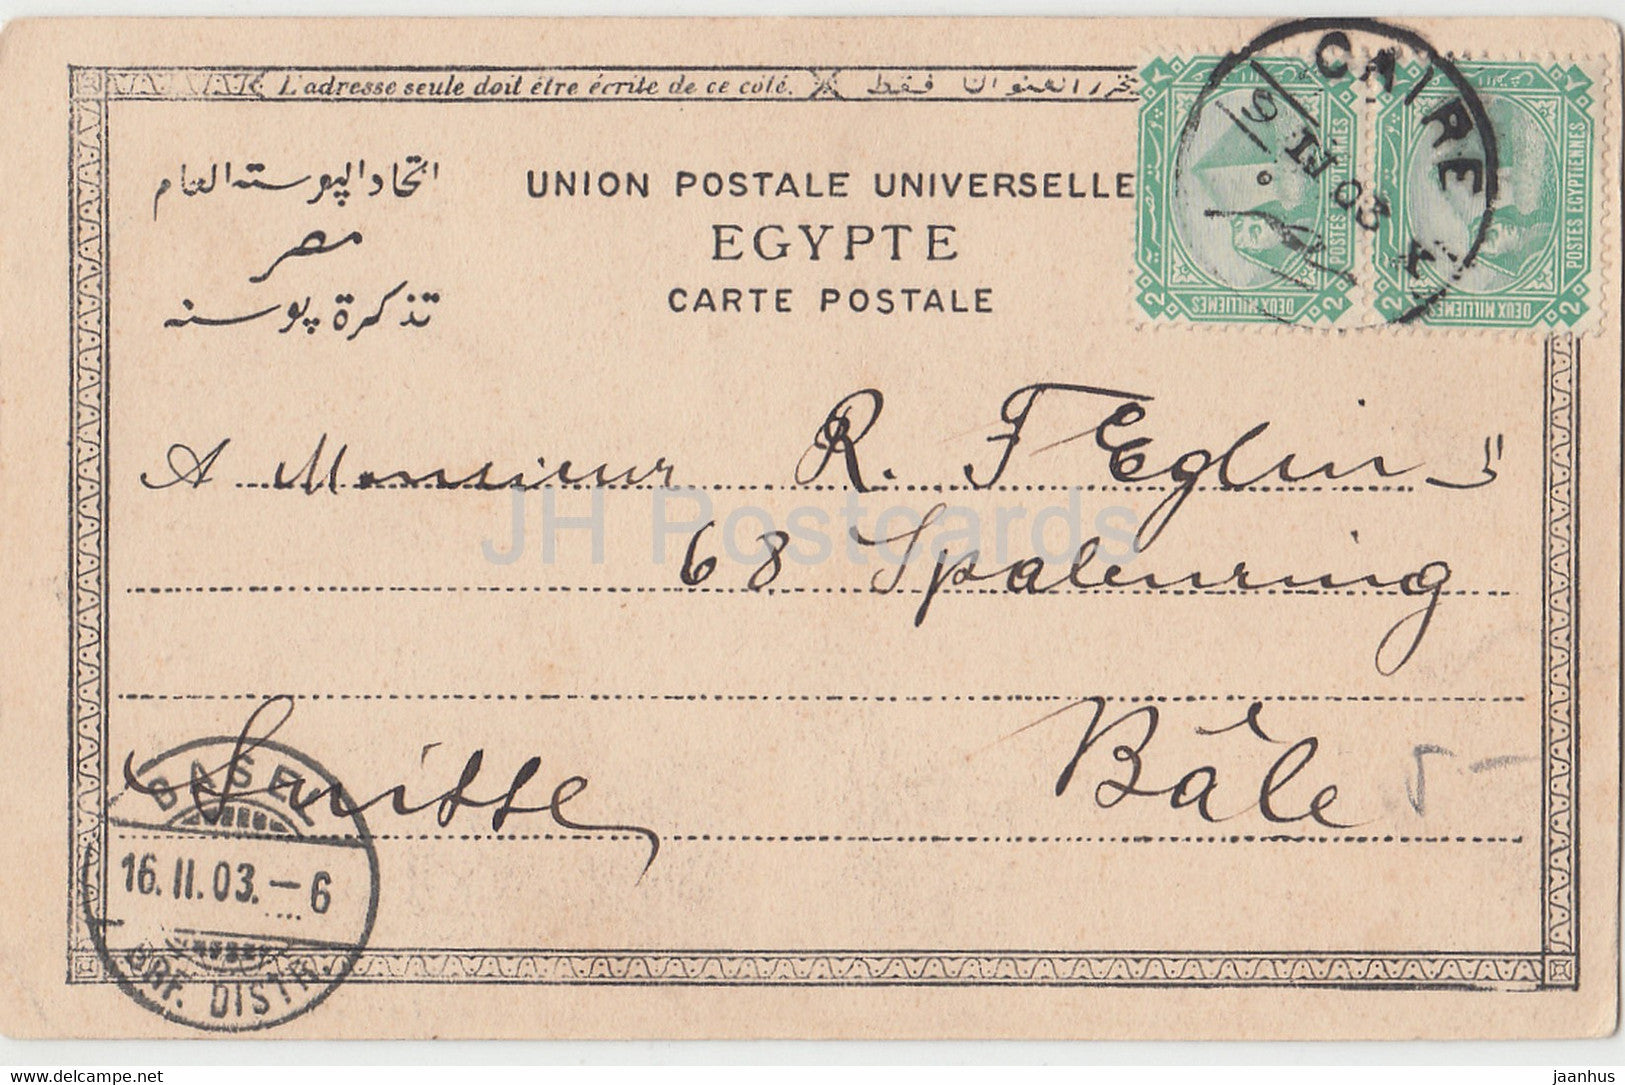 L'adresse seule doit être écrite de ce côté.
العنوان فقط
اتحاد البوسته العام
UNION POSTALE UNIVERSELLE
مصر
EGYPTE
تذكرة بوسته
CARTE POSTALE
CAIRE
9 II 03
POSTES EGYPTIENNES
DEUX MILLIEMES
2 2
POSTES EGYPTIENNES
DEUX MILLIEMES
2 2
A Monsieur R. F Eglin
68 Spalenring
Suisse Bâle
BASEL
16. II. 03. – 6
BRF. DISTR.
JH Postcards
delcampe.net
jaanhus